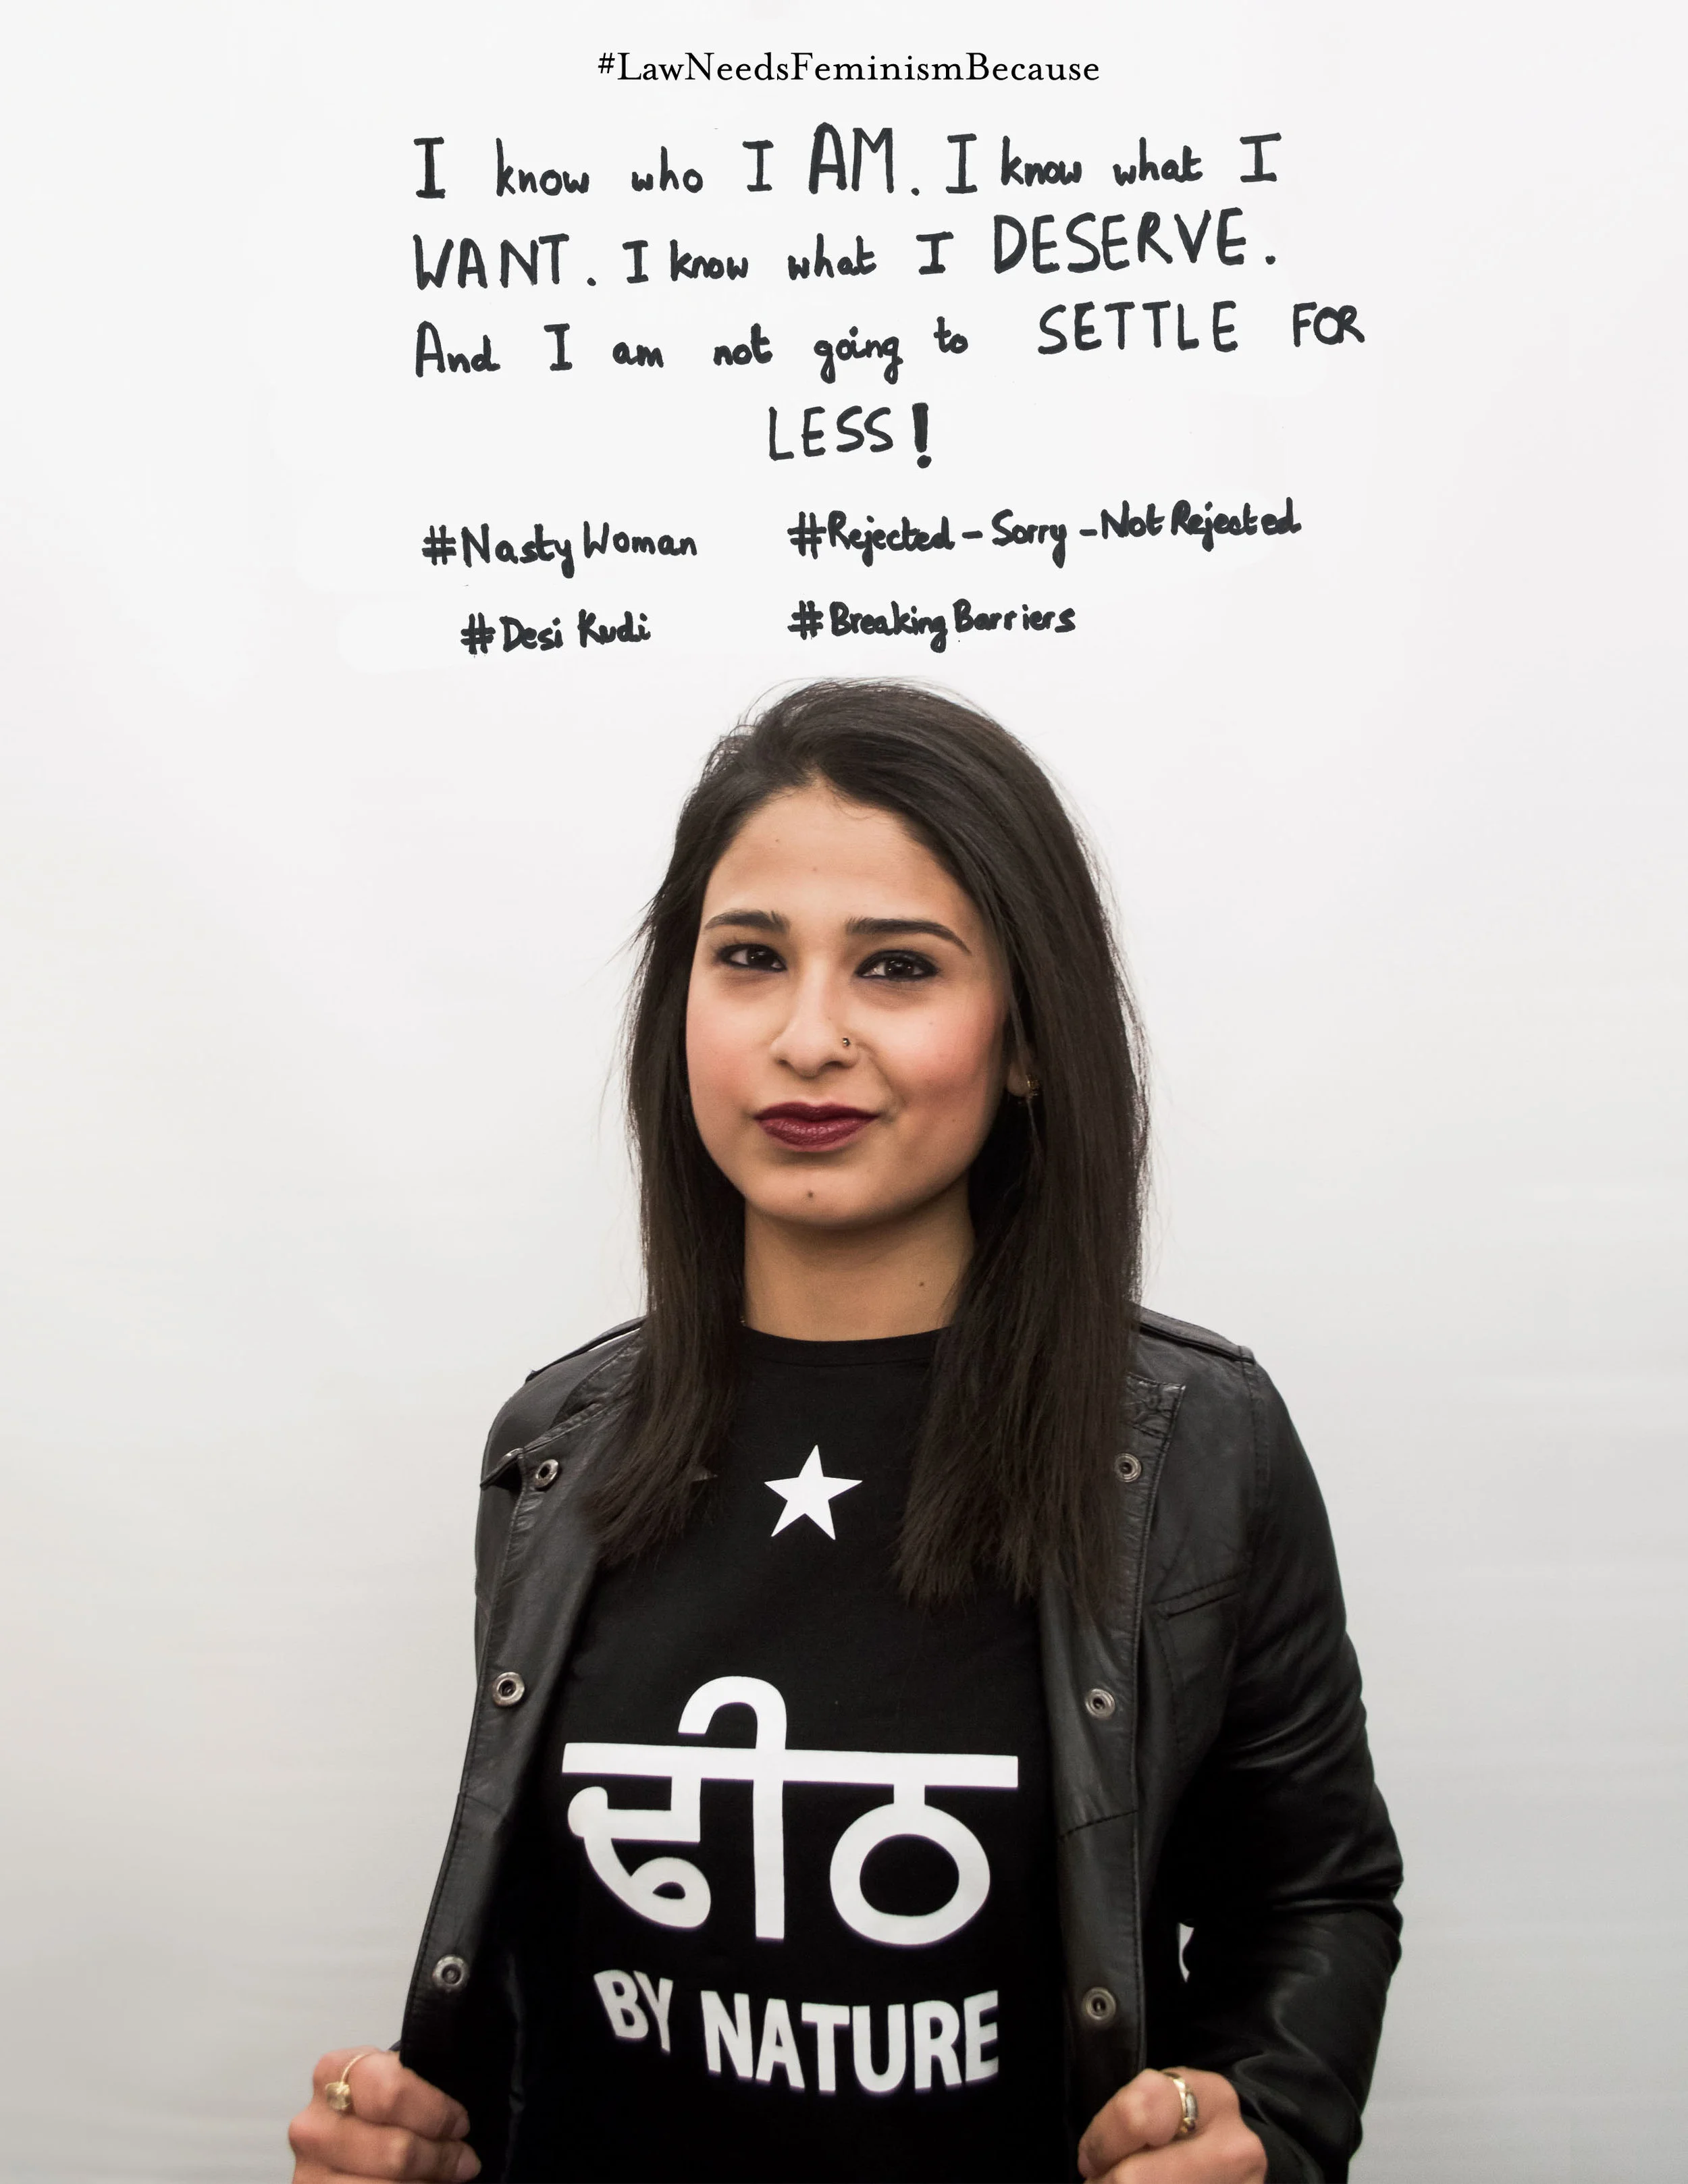 #LawNeedsFeminismBecause
I know who I AM. I know what I
WANT. I know what I DESERVE.
And I am not going to SETTLE FOR
LESS!
#Nasty Woman #Rejected-Sorry-Not Rejected
#Desi Kudi #Breaking Barriers
ਢੀਠ
BY NATURE